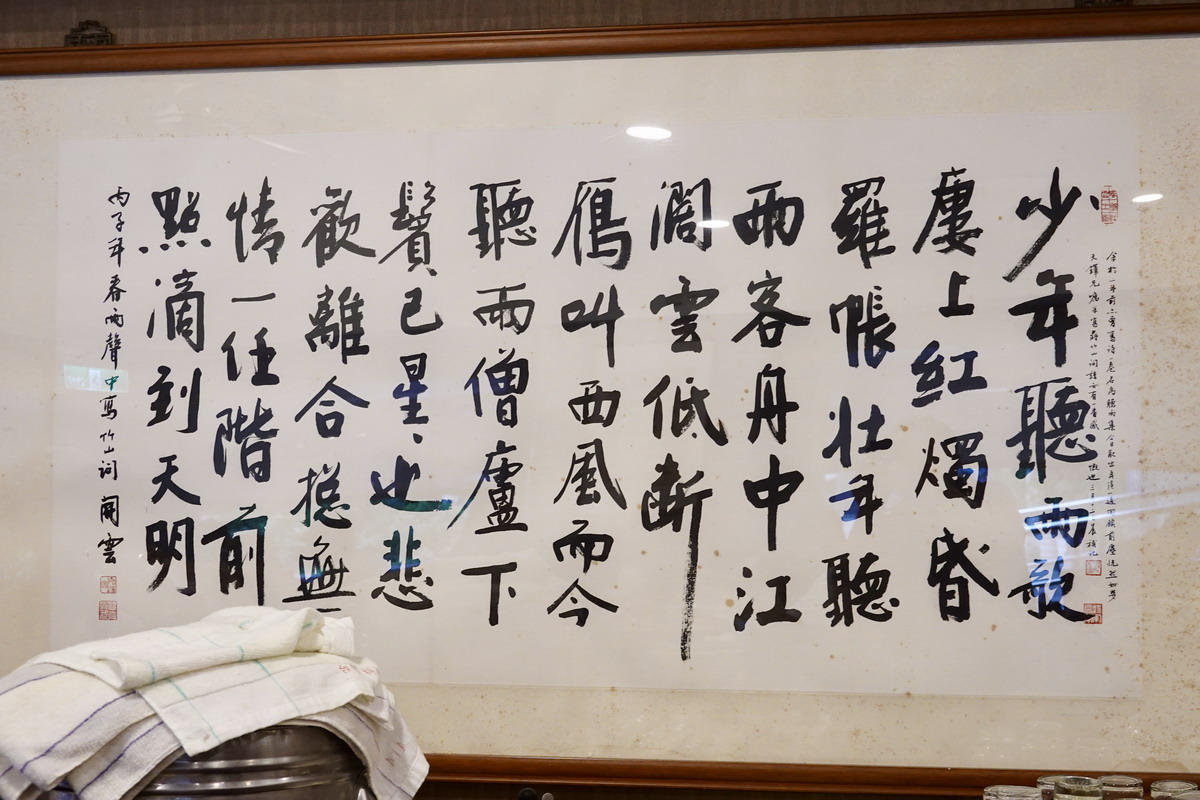 少年聽雨歌
廔上紅燭昏
羅帳壮年聽
雨客舟中江
濶雲低断
鴈叫西風而今
聽雨僧廬下
鬢已星、也悲
歡離合揔無
情一任階前
點滴到天明
丙子年春雨聲中寫竹山词 開雲